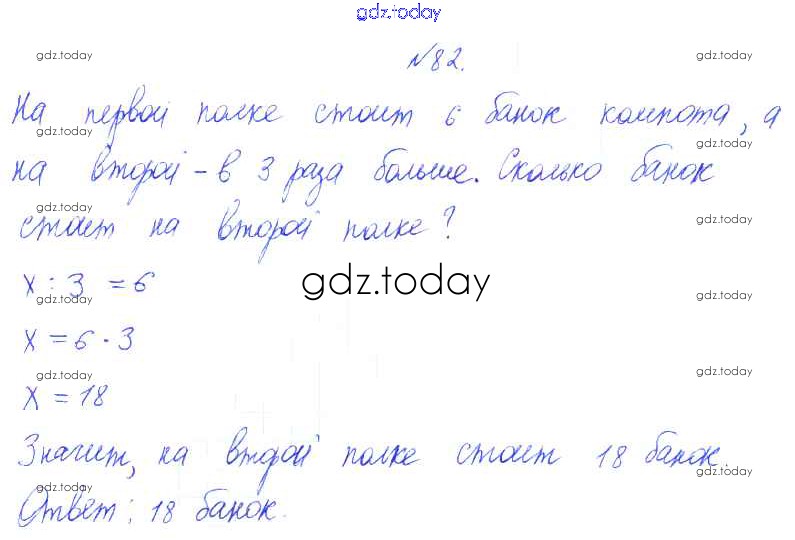 gdz.today
gdz.today gdz.today
№82.
На первой полке стоит 6 банок компота, а
gdz.today gdz.today
на второй - в 3 раза больше. Сколько банок
gdz.today gdz.today
стоит на второй полке?
x : 3 = 6
gdz.today
gdz.today gdz.today
x = 6 · 3
gdz.today gdz.today
x = 18
Значит, на второй полке стоит 18 банок.
gdz.today gdz.today
Ответ: 18 банок.